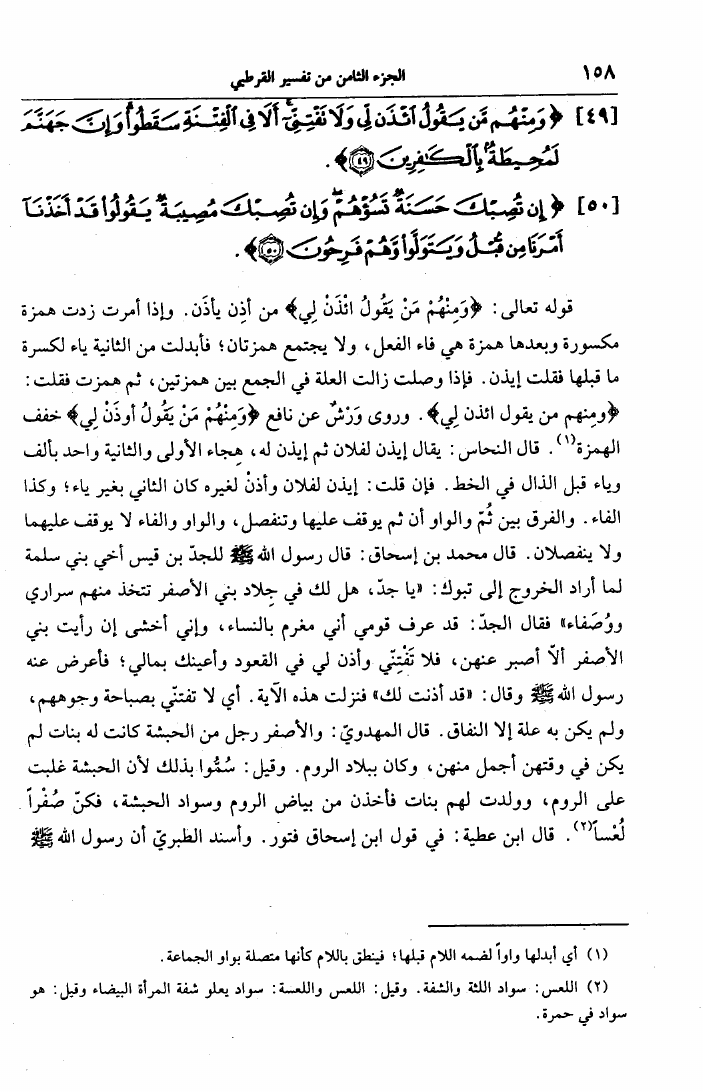 ١٥٨ الجزء الثامن من تفسير القرطبي
[٤٩] ﴿ وَمِنْهُم مَّن يَقُولُ ائْذَن لِّي وَلَا تَفْتِنِّي أَلَا فِي الْفِتْنَةِ سَقَطُوا وَإِنَّ جَهَنَّمَ
لَمُحِيطَةٌ بِالْكَافِرِينَ ۝٤٩﴾ .
[٥٠] ﴿ إِن تُصِبْكَ حَسَنَةٌ تَسُؤْهُمْ وَإِن تُصِبْكَ مُصِيبَةٌ يَقُولُوا قَدْ أَخَذْنَا
أَمْرَنَا مِن قَبْلُ وَيَتَوَلَّوا وَّهُمْ فَرِحُونَ ۝٥٠﴾ .
قوله تعالى: ﴿وَمِنْهُمْ مَنْ يَقُولُ ائْذَنْ لِي﴾ من أذِن يأذَن. وإذا أمرت زدت همزة
مكسورة وبعدها همزة هي فاء الفعل، ولا يجتمع همزتان؛ فأبدلت من الثانية ياء لكسرة
ما قبلها فقلت إيذن. فإذا وصلت زالت العلة في الجمع بين همزتين، ثم همزت فقلت:
﴿ومنهم من يقول ائذن لي﴾. وروى وَرْشٌ عن نافع ﴿وَمِنْهُمْ مَنْ يَقُولُ أوذَنْ لِي﴾ خفف
الهمزة(١). قال النحاس: يقال إيذن لفلان ثم إيذن له، هِجاء الأولى والثانية واحد بألف
وياء قبل الذال في الخط. فإن قلت: إيذن لفلان وأذنْ لغيره كان الثاني بغير ياء؛ وكذا
الفاء. والفرق بين ثُمّ والواو أن ثم يوقف عليها وتنفصل، والواو والفاء لا يوقف عليهما
ولا ينفصلان. قال محمد بن إسحاق: قال رسول الله ﷺ للجدّ بن قيس أخي بني سلمة
لما أراد الخروج إلى تبوك: «يا جدّ، هل لك في جِلاد بني الأصفر تتخذ منهم سراري
ووُصَفاء» فقال الجدّ: قد عرف قومي أني مغرم بالنساء، وإني أخشى إن رأيت بني
الأصفر ألاّ أصبر عنهن، فلا تَفْتِنّي وأذن لي في القعود وأعينك بمالي؛ فأعرض عنه
رسول الله ﷺ وقال: «قد أذنت لك» فنزلت هذه الآية. أي لا تفتنّي بصباحة وجوههم،
ولم يكن به علة إلا النفاق. قال المهدويّ: والأصفر رجل من الحبشة كانت له بنات لم
يكن في وقتهن أجمل منهن، وكان ببلاد الروم. وقيل: سُمُّوا بذلك لأن الحبشة غلبت
على الروم، وولدت لهم بنات فأخذن من بياض الروم وسواد الحبشة، فكنّ صُفْراً
لُعْساً(٢). قال ابن عطية: في قول ابن إسحاق فتور. وأسند الطبريّ أن رسول الله ﷺ
(١) أي أبدلها واواً لضمه اللام قبلها؛ فينطق باللام كأنها متصلة بواو الجماعة.
(٢) اللعس: سواد اللثة والشفة. وقيل: اللعس واللعسة: سواد يعلو شفة المرأة البيضاء وقيل: هو
سواد في حمرة.